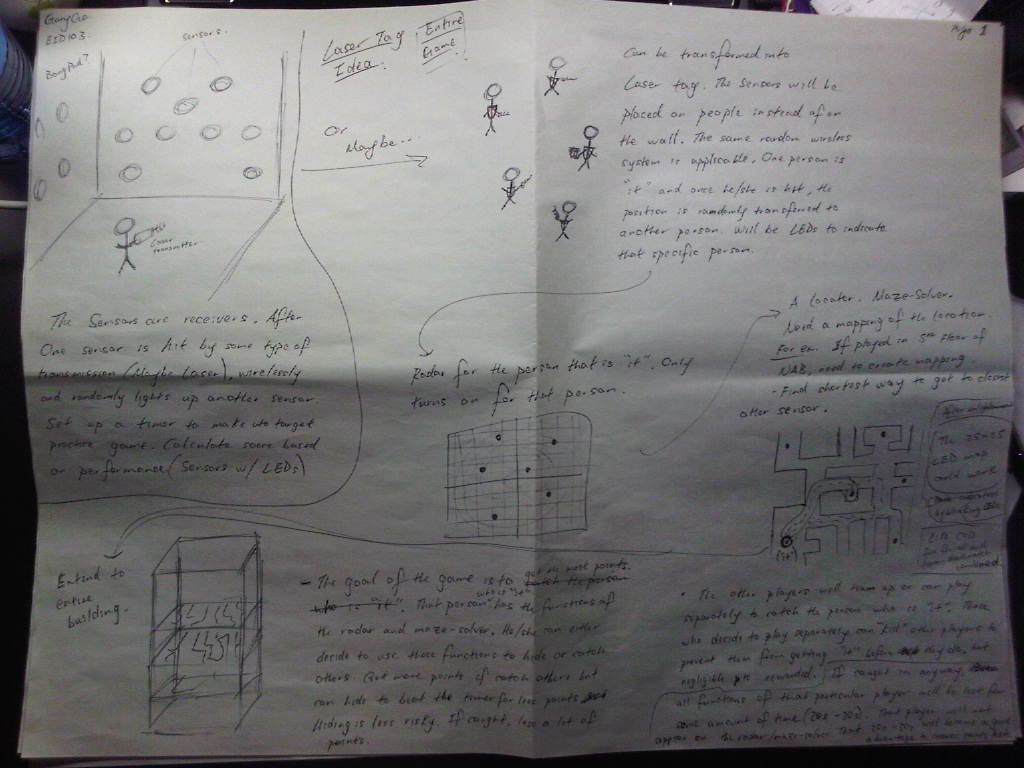 EID103
sensors.
Laser Tag
Idea.
Entire
Game
Or
Maybe...
Laser
transmitter.
1
Can be transformed into
Laser tag. The sensors will be
placed on people instead of on
the wall. The same random wireless
system is applicable. One person is
"it" and once he/she is hit, the
position is randomly transferred to
another person. Will be LEDs to indicate
that specific person.
The Sensors are receivers. After
One sensor is hit by some type of
transmission (Maybe Laser), wirelessly
and randomly lights up another sensor.
Set up a timer to make into target
practice game. Calculate score based
on performance (Sensors w/ LEDs)
Radar for the person that is "it". Only
turns on for that person.
A locater. Maze-Solver.
Need a mapping of the location.
For ex. If played in 5th floor of
NAB, need to create mapping.
- Find shortest way to get to closest
other sensor.
The 25x25
LED map
could work
(it)
Extend to
entire
building.
- The goal of the game is to get the most points. catch the person
who is "it". That person who is "it" has the functions of
the radar and maze-solver. He/she can either
decide to use these functions to hide or catch
others. Get more points if catch others but
can hide to beat the timer for less points.
Hiding is less risky. If caught, lose a lot of
points.
• The other players will team up or can play
separately to catch the person who is "it". Those
who decide to play separately can "kill" other players to
prevent them from getting "it" before they do, but
negligible pts rewarded. If caught in anyway,
all functions of that particular player will be lost for
some amount of time (20s-30s). That player will not
appear on the radar/maze-solver. That 20s-30s will become a good
advantage to